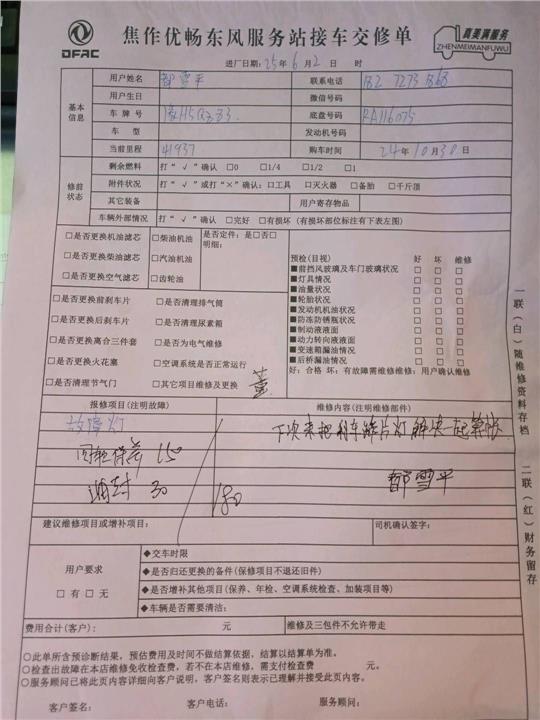 DFAC
焦作优畅东风服务站接车交修单
真美满服务
ZHENMEIMANFUWU
进厂日期：25年6月2日 时
基本信息
用户姓名 郜雪平 联系电话 182 7273 1868
用户生日 微信号码
车牌号 豫H5Q223 底盘号码 RA116075
车型 发动机号码
当前里程 41937 购车时间 24年10月30日
修前状态
剩余燃料 打“√”确认 □0 □1/4 □1/2 □1
附件状况 打“√”或打“×”确认：□工具 □灭火器 □备胎 □千斤顶
其它装备 用户寄存物品
车辆外部情况 打“√”确认 □完好 □有损坏（有损坏部位标注有下表左图）
□是否更换机油滤芯 □柴油机油 是否定件：是□否□
□是否更换柴油滤芯 □汽油机油 明细：
□是否更换空气滤芯 □齿轮油
□是否更换前刹车片 □是否清理排气筒
□是否更换后刹车片 □是否清理尿素箱
□是否更换离合三件套 □是否为电气维修
□是否更换火花塞 □空调系统是否正常运行
□是否清理节气门 □其它项目维修及更换
预检（目视） 好 坏 维修
■前挡风玻璃及车门玻璃状况 □ □ □
■灯具情况 □ □ □
■油量状况 □ □ □
■轮胎状况 □ □ □
■发动机机油状况 □ □ □
■防冻防锈瓶状况 □ □ □
■制动液液面 □ □ □
■动力转向液液面 □ □ □
■变速箱漏油情况 □ □ □
■后桥漏油情况 □ □ □
好：合格 坏：有故障需维修维修：用户确认维修
报修项目（注明故障） 维修内容（注明维修部件）
故障灯 下次来把刹车蹄片灯解决一起算帐
保养 150
30 180 郜雪平
建议维修项目或增补项目： 司机确认签字：
用户要求
□有 □无
◆交车时限
◆是否归还更换的备件（保修项目不退还旧件）
◆是否增补其他项目（保养、年检、空调系统检查、加装项目等）
◆车辆是否需要清洁：
费用合计（客户）： 元 维修及三包件不允许带走
○此单所含预诊断结果，预估费用及时间不做结算依据，结算以结算单为准。
○检查出故障在本店维修免收检查费，若不在本店维修，需支付检查费 元。
○服务顾问已将此页内容详细向客户说明，客户签名则表示已理解并接受此页内容。
客户签名： 客户电话： 服务顾问：
一联（白）随维修资料存档 二联（红）财务留存